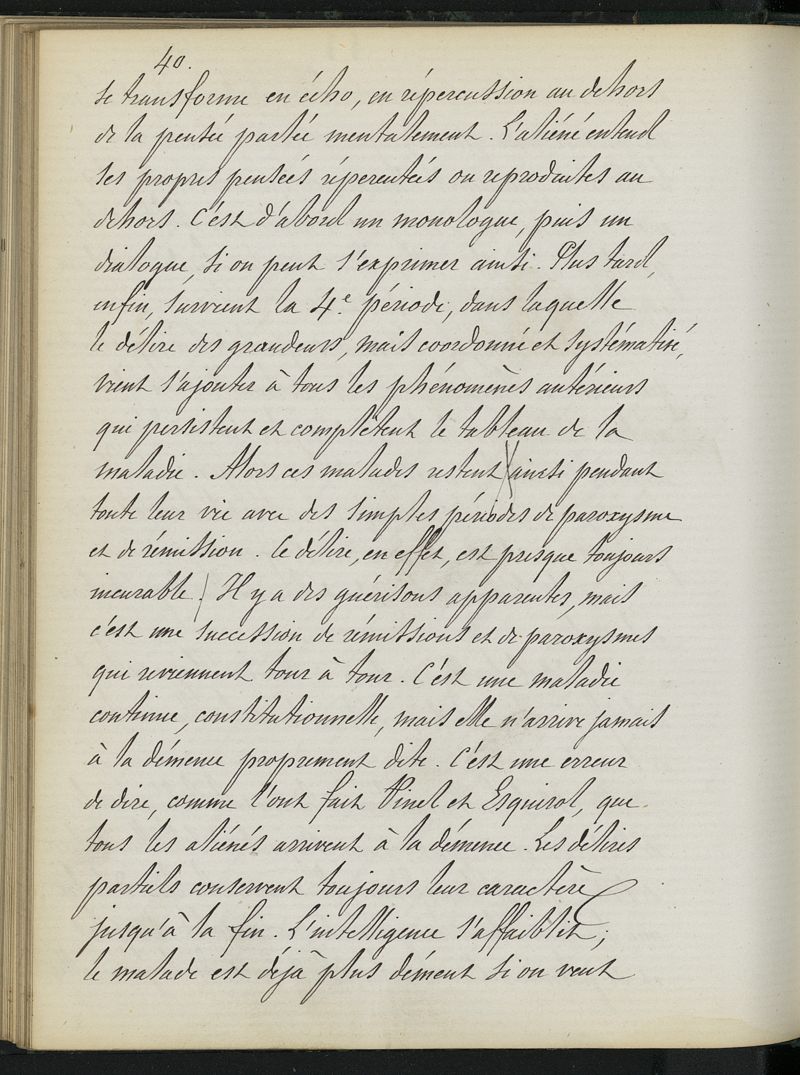 40.
se transforme en écho, en répercussion au dehors
de la pensée parlée mentalement. L'aliéné entend
ses propres pensées répercutées ou reproduites au
dehors. C'est d'abord un monologue, puis un
dialogue, si on peut s'exprimer ainsi. Plus tard,
enfin, survient la 4e. période, dans laquelle
le délire des grandeurs, mais coordonné et systématisé,
vient s'ajouter à tous les phénomènes antérieurs
qui persistent et complètent le tableau de la
maladie. Alors ces malades restent ainsi pendant
toute leur vie avec des simples périodes de paroxysme
et de rémission. Ce délire, en effet, est presque toujours
incurable. Il y a des guérisons apparentes, mais
c'est une succession de rémissions et de paroxysmes
qui reviennent tour à tour. C'est une maladie
continue, constitutionnelle, mais elle n'arrive jamais
à la démence proprement dite. C'est une erreur
de dire, comme l'ont fait Pinel et Esquirol, que
tous les aliénés arrivent à la démence. Les délires
partiels conservent toujours leur caractère
jusqu'à la fin. L'intelligence s'affaiblit;
le malade est déjà plus dément si on veut